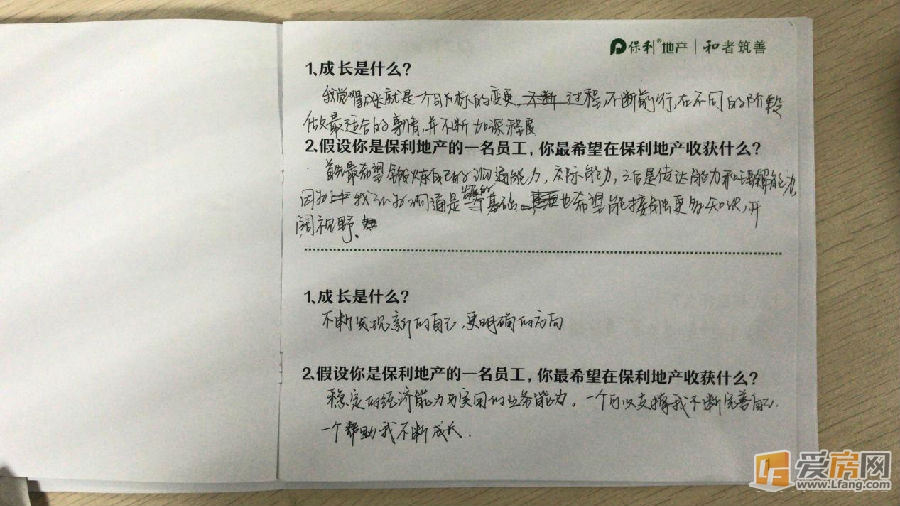 保利®地产 | 和者筑善
1、成长是什么？
我觉得成长就是一个目标的变更，不断 过程 不断前行，在不同的阶段
做最适合的事情，并不断加深程度
2、假设你是保利地产的一名员工，你最希望在保利地产收获什么？
首先最希望锻炼自己的沟通能力，交际能力，之后是表达能力和理解能力
因为 我认为沟通是 等基础 也希望能接触更多知识，开
阔视野、
1、成长是什么？
不断发现新的自己、更明确的方向
2、假设你是保利地产的一名员工，你最希望在保利地产收获什么？
稳定的经济能力与实用的业务能力。一个可以支撑我不断完善自己、
一个帮助我不断成长
爱房网
www.Lfang.com